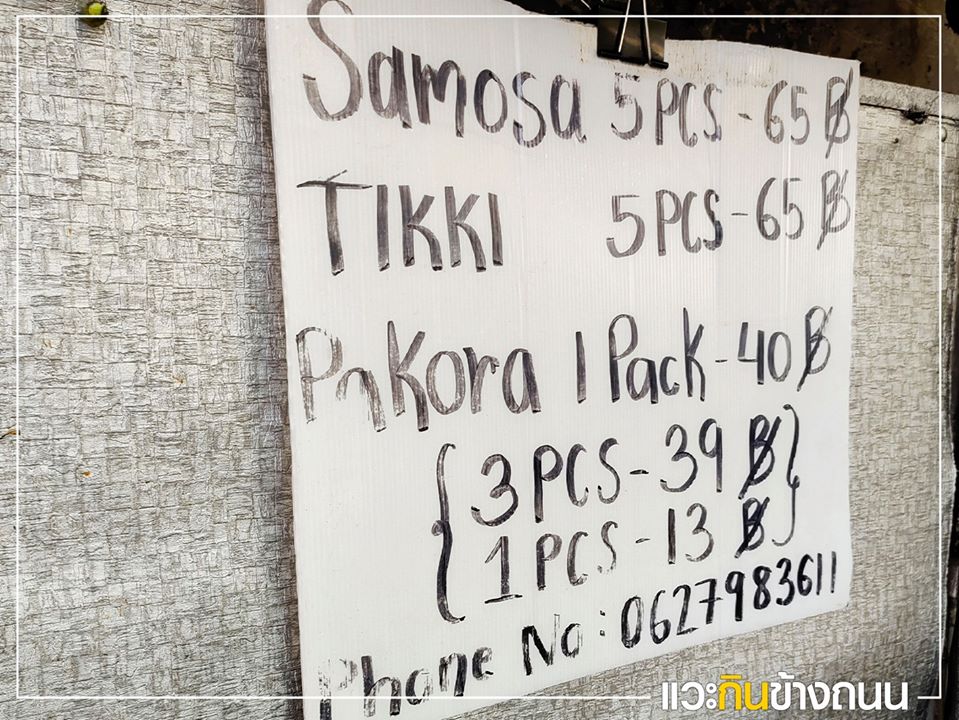 Samosa 5 PCS - 65 ฿
TIKKI 5 PCS - 65 ฿
Pakora 1 Pack - 40 ฿
{ 3 PCS - 39 ฿ }
{ 1 PCS - 13 ฿ }
Phone No : 0627983611
แวะกินข้างถนน